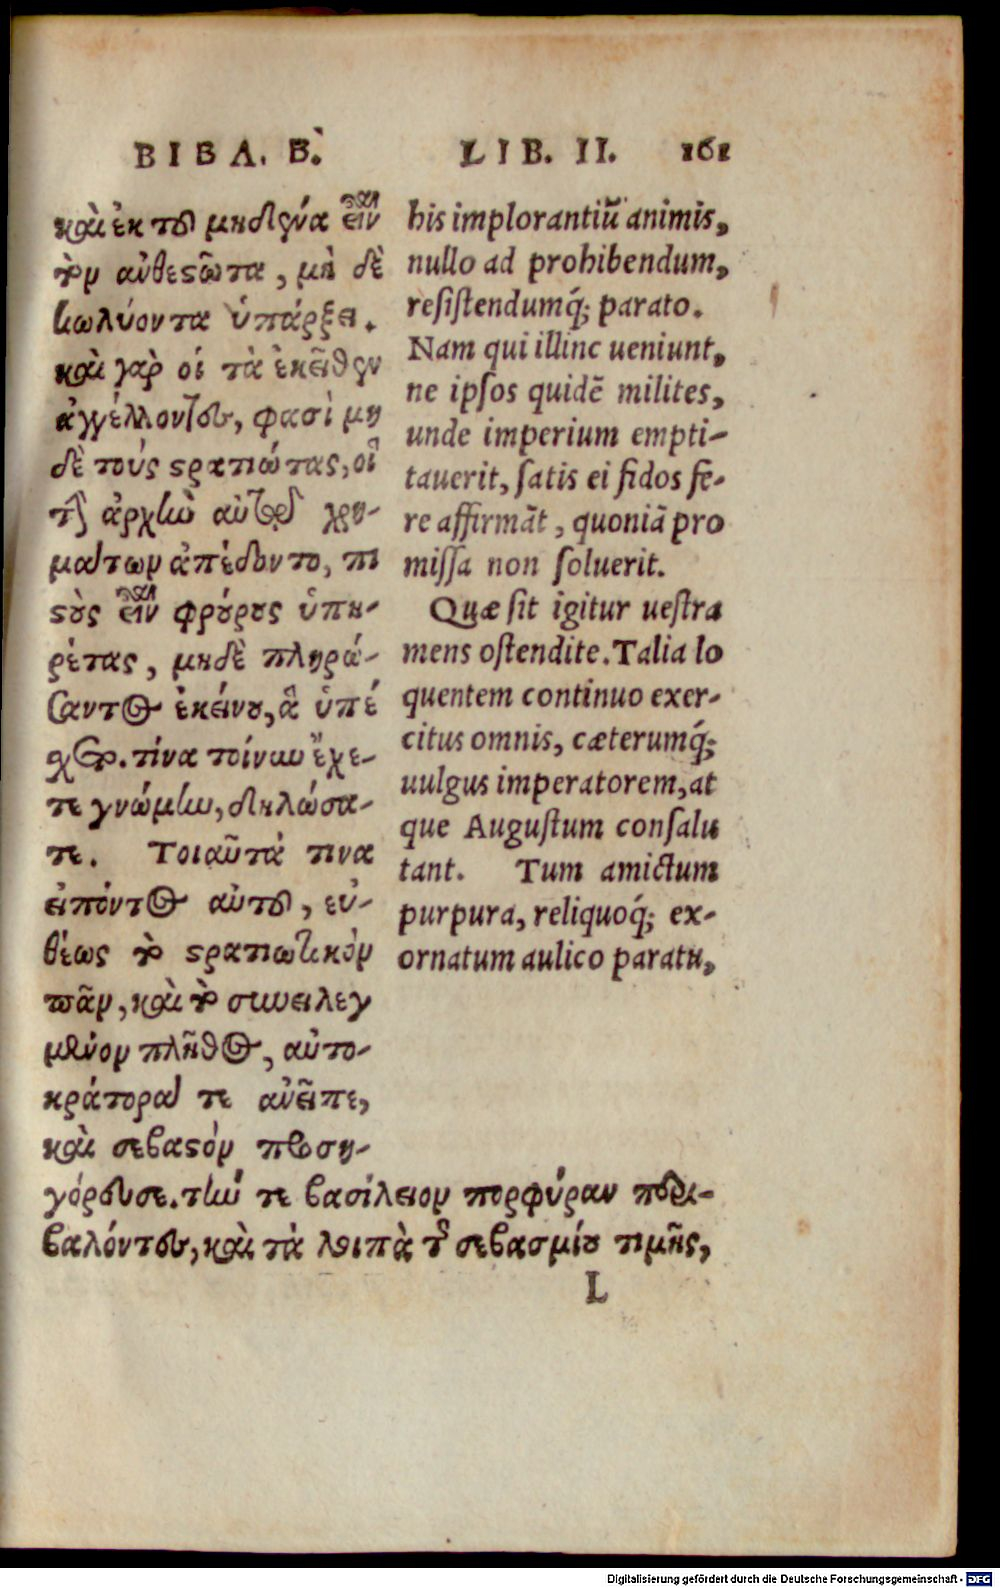 ΒΙΒΛ. Β.
καὶ ἐκ τοῦ μηδένα εἶναι
τὸν ἀνθεστῶτα, μὴ δὲ
κωλύοντα ὑπάρξει.
καὶ γὰρ οἱ τὰ ἐκεῖθεν
ἀγγέλλοντες, φασὶ μη
δὲ τοὺς στρατιώτας, οἳ
τὴν ἀρχὴν αὐτῷ χρη-
μάτων ἀπέδοντο, πι
στοὺς εἶναι φρουροὺς ὑπη-
ρέτας, μηδὲ πληρώ-
σαντος ἐκείνου, ἃ ὑπέ
σχετο. τίνα τοίνυν ἔχε-
τε γνώμην, δηλώσα-
τε. Τοιαῦτά τινα
εἰπόντος αὐτοῦ, εὐ-
θέως τὸ στρατιωτικὸν
πᾶν, καὶ τὸ συνειλεγ
μένον πλῆθος, αὐτο-
κράτορά τε ἀνεῖπε,
καὶ σεβαστὸν προση-
γόρευσε. τήν τε βασίλειον πορφύραν περι-
βαλόντες, καὶ τὰ λοιπὰ τῆς σεβασμίου τιμῆς,
LIB. II. 161
his implorantiũ animis,
nullo ad prohibendum,
resistendumq́; parato.
Nam qui illinc ueniunt,
ne ipsos quidẽ milites,
unde imperium empti-
tauerit, satis ei fidos fe-
re affirmãt, quoniã pro
missa non soluerit.
Quæ sit igitur uestra
mens ostendite. Talia lo
quentem continuo exer-
citus omnis, cæterumq́;
uulgus imperatorem, at
que Augustum consalu
tant. Tum amictum
purpura, reliquoq́; ex-
ornatum aulico paratu,
L
Digitalisierung gefördert durch die Deutsche Forschungsgemeinschaft - DFG